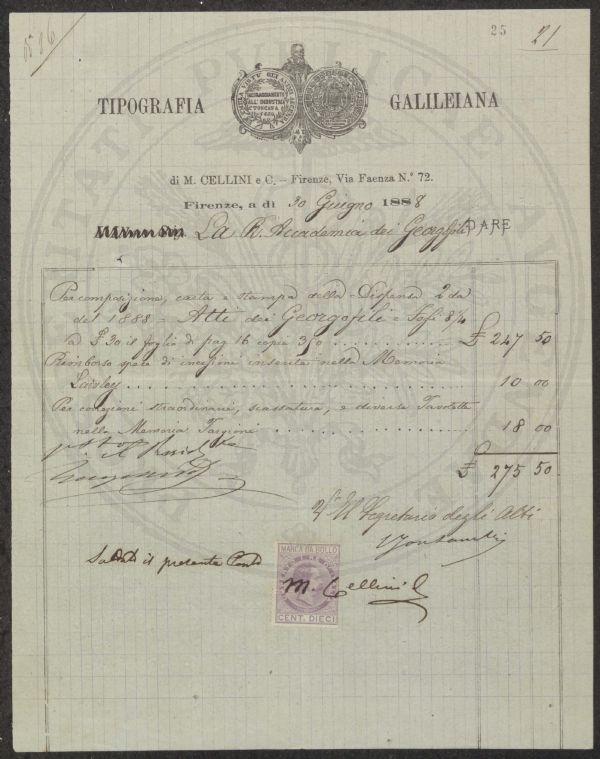 25
21
TIPOGRAFIA GALILEIANA
di M. CELLINI e C. – Firenze, Via Faenza N.° 72.
Firenze, a dì 30 Giugno 1888
La R. Accademia dei Georgofili DARE
Per composizione, carta e stampa della Dispensa 2da
del 1888 – Atti dei Georgofili – Fogli 8 1/4
a £ 30 il foglio di pag 16 copie 350 . . . . . . . . £ 247 50
Rimborso spese di incisioni inserite nella Memoria
Lawley . . . . . . . . 10 00
Per correzioni straordinarie, scassatura, e diverse Tavolette
nella Memoria Targioni . . . . . . . . 18 00
£ 275 50
Il Segretario degli Atti
Saldato il presente Conto
MARCA DA BOLLO
M. Cellini C.
CENT. DIECI